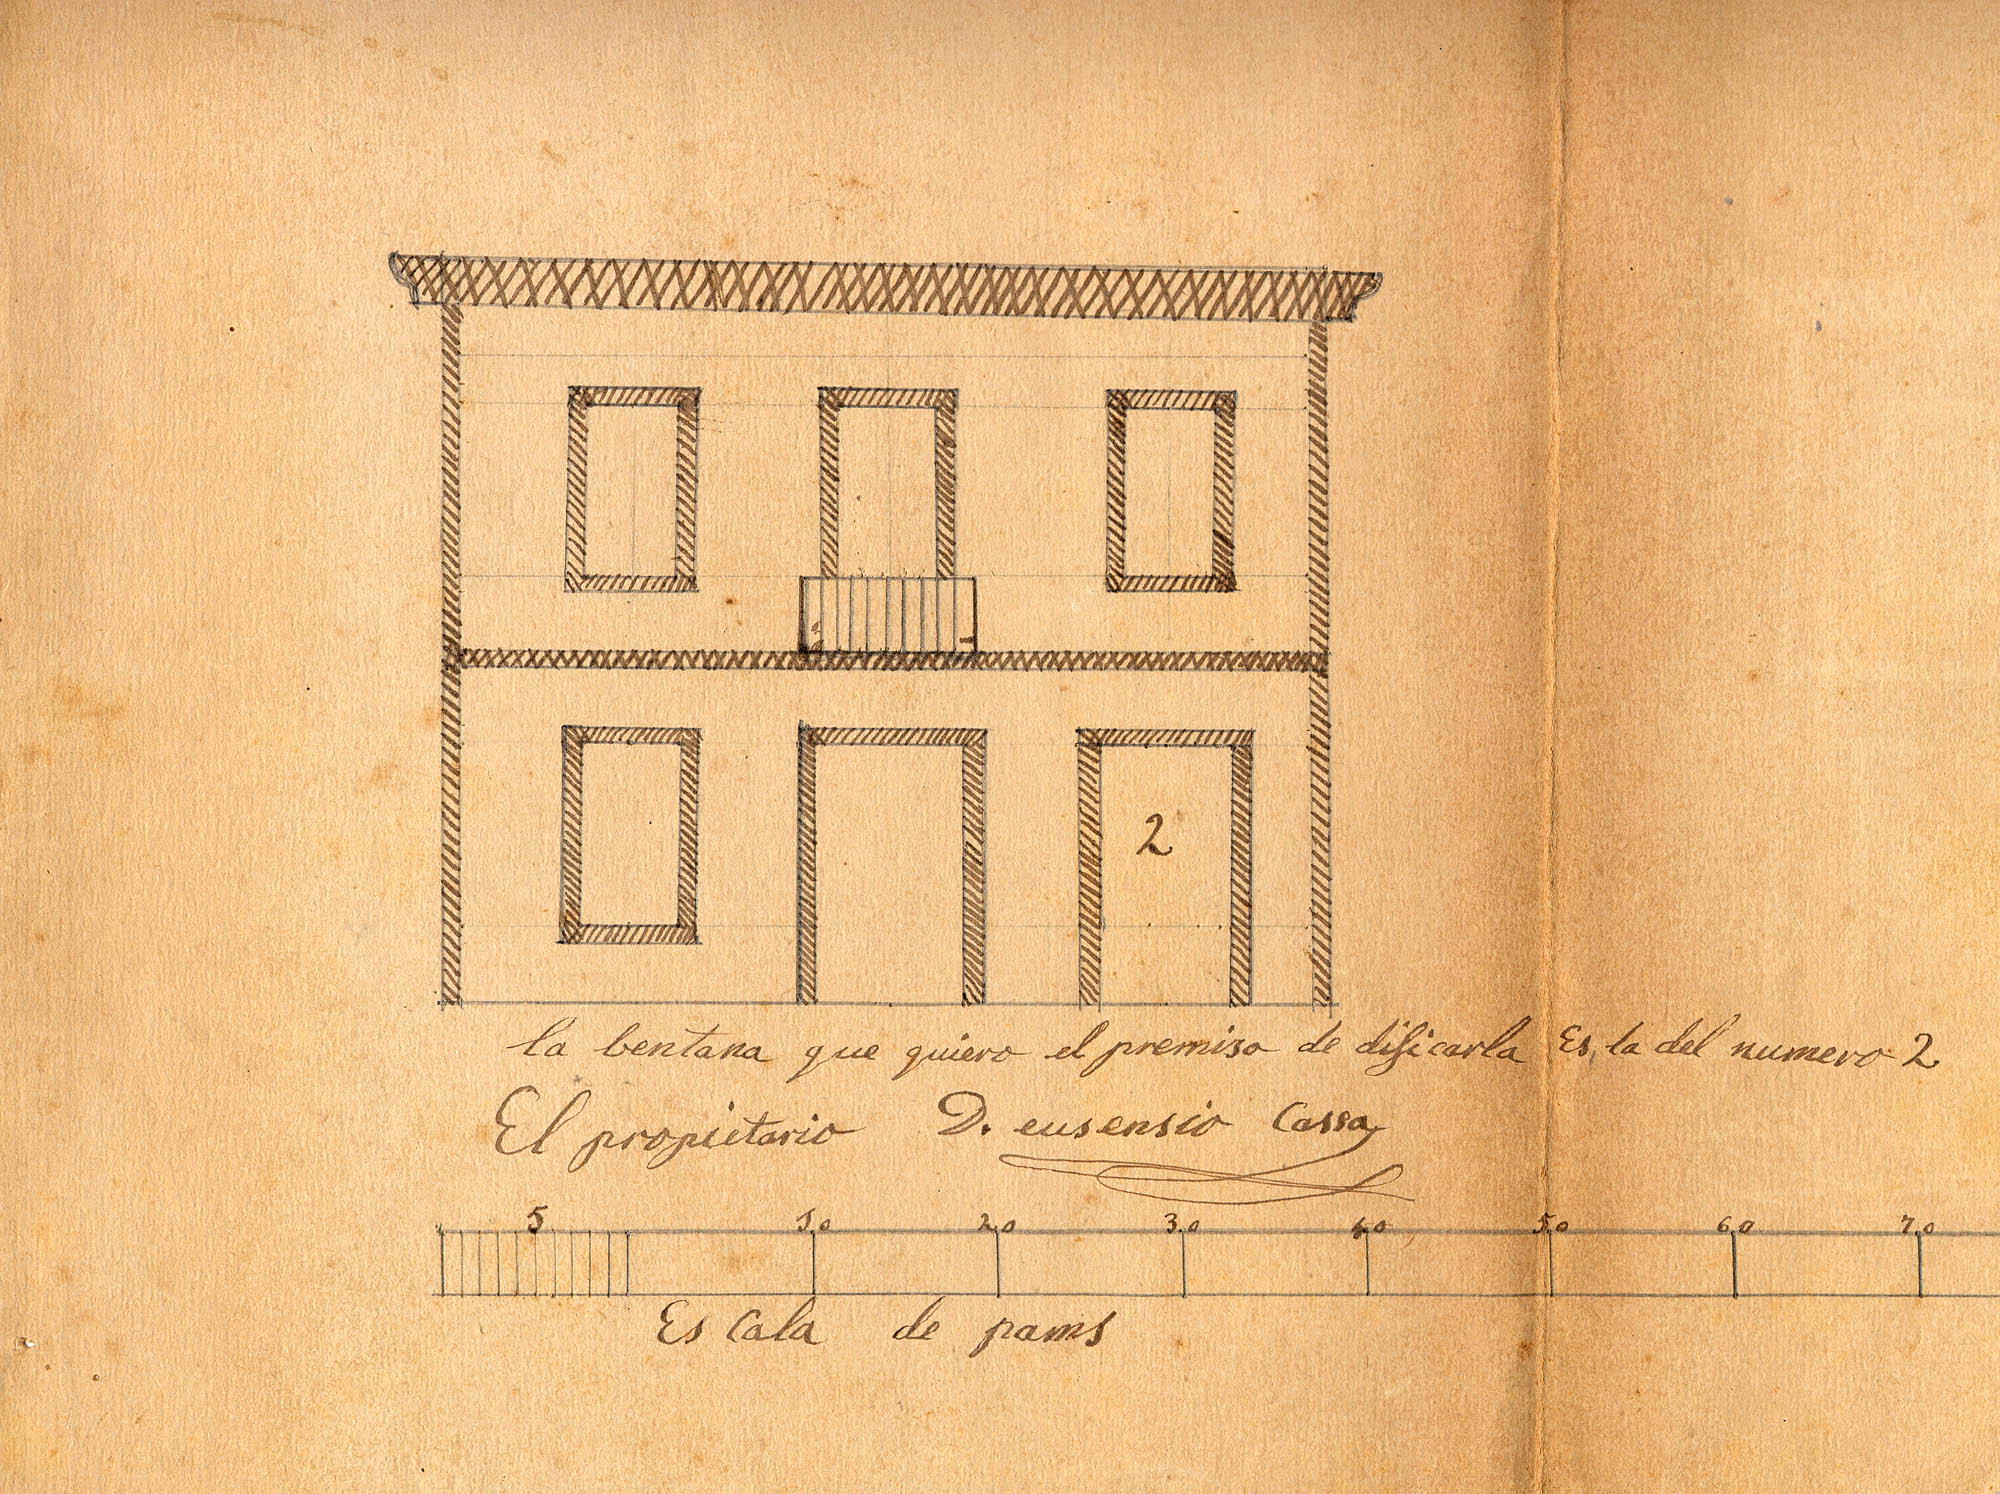 2
la bentana que quiero el premiso de dificarla Es, la del numero 2
El propietario D. eusensio Cassa
5 10 20 30 40 50 60 70
Es Cala de pams